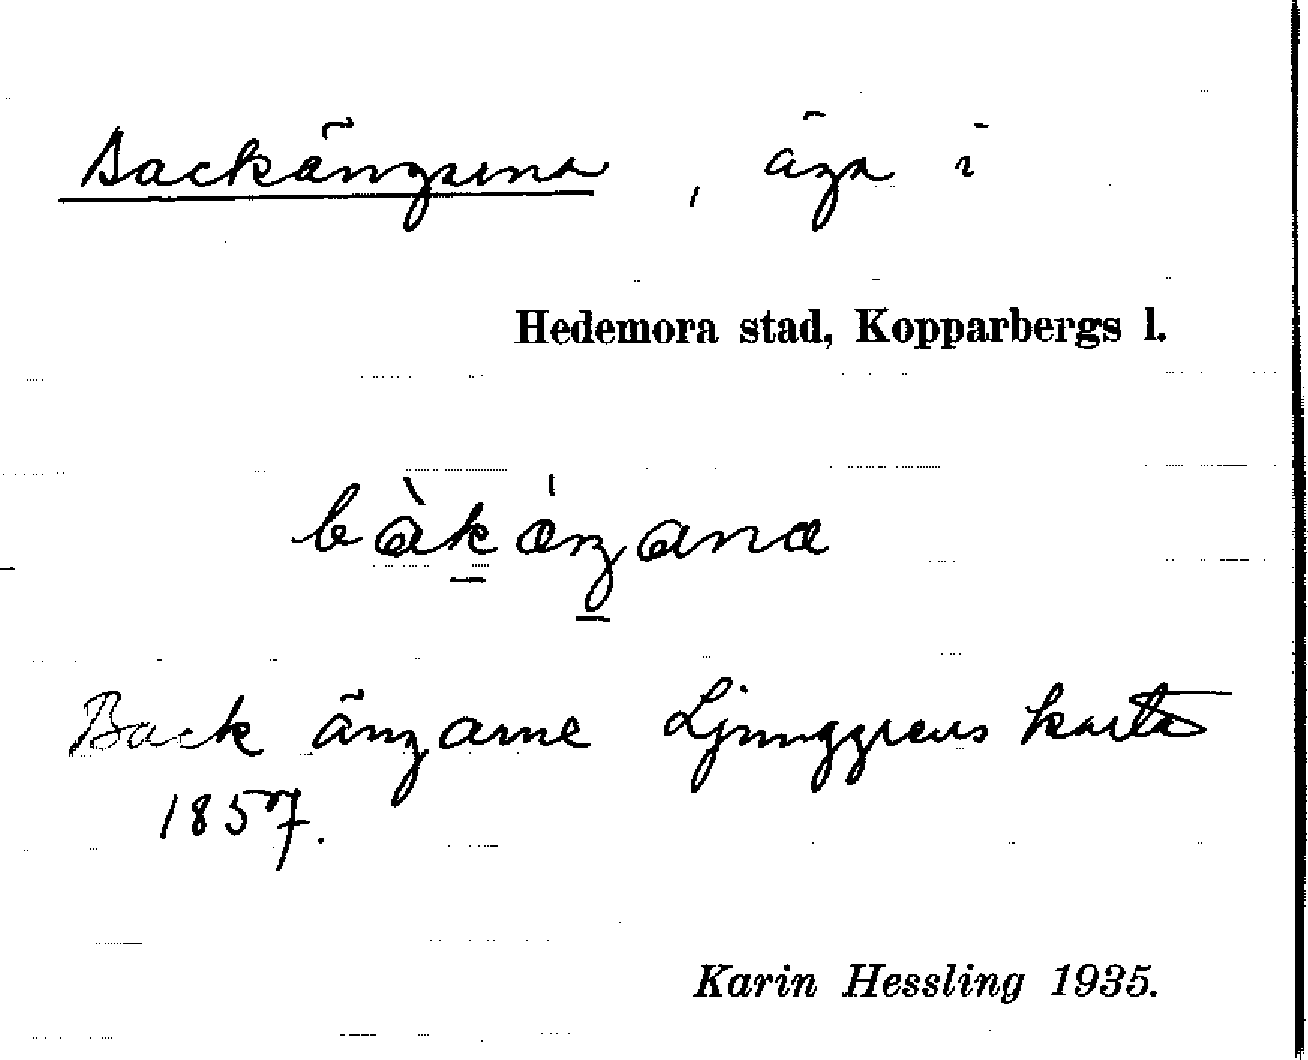 Backängarna, äga i
Hedemora stad, Kopparbergs l.
bàkáŋana
Back ängarne Ljunggrens karta
1857.
Karin Hessling 1935.